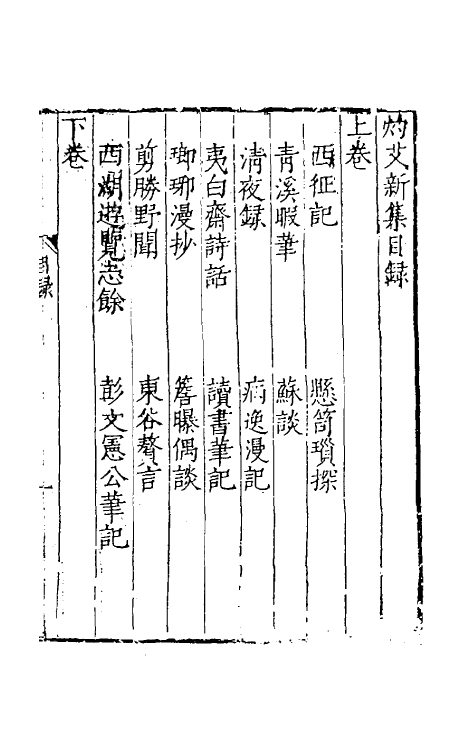 灼艾新集目録
上卷
西征記　懸笥瑣探
青溪暇筆　蘇談
清夜録　病逸漫記
夷白齋詩話　讀書筆記
瑯琊漫抄　簷曝偶談
剪勝野聞　東谷贅言
西湖遊覽志餘　彭文憲公筆記
下卷
目録